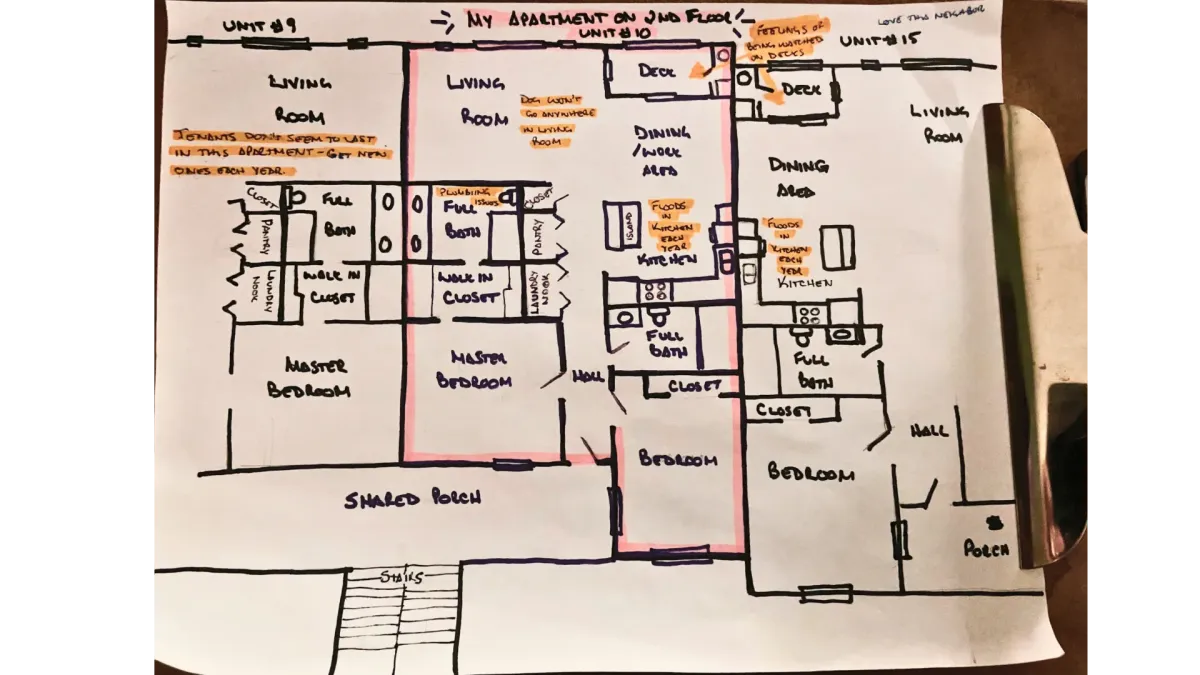 UNIT #9
MY APARTMENT ON 2ND FLOOR
UNIT #10
LOVE THIS NEIGHBOR
FEELINGS OF
BEING WATCHED
ON DECKS
UNIT #15
LIVING
ROOM
LIVING
ROOM
DECK
DECK
LIVING
ROOM
TENANTS DON'T SEEM TO LAST
IN THIS APARTMENT - GET NEW
ONES EACH YEAR.
DOG WON'T
GO ANYWHERE
IN LIVING
ROOM
DINING
/WORK
AREA
DINING
AREA
CLOSET
FULL
BATH
PLUMBING
ISSUES
FULL
BATH
CLOSET
PANTRY
PANTRY
ISLAND
FLOODS
IN
KITCHEN
EACH
YEAR
KITCHEN
FLOODS
IN
KITCHEN
EACH
YEAR
KITCHEN
LAUNDRY
NOOK
WALK IN
CLOSET
WALK IN
CLOSET
LAUNDRY
NOOK
FULL
BATH
FULL
BATH
MASTER
BEDROOM
MASTER
BEDROOM
HALL
CLOSET
CLOSET
HALL
BEDROOM
BEDROOM
SHARED PORCH
PORCH
STAIRS